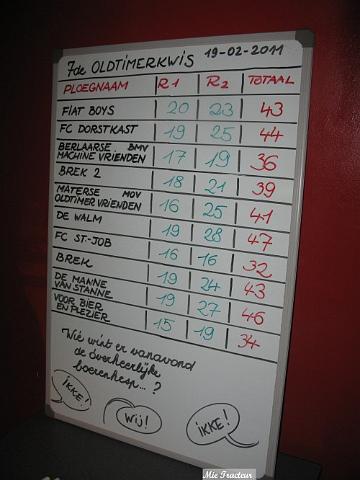 7de OLDTIMERKWIS 19-02-2011
PLOEGNAAM R1 R2 TOTAAL
FIAT BOYS 20 23 43
FC DORSTKAST 19 25 44
BERLAARSE BMV
MACHINE VRIENDEN 17 19 36
BREK 2 18 21 39
MATERSE MOV
OLDTIMER VRIENDEN 16 25 41
DE WALM 19 28 47
FC ST.-JOB 16 16 32
BREK 19 24 43
DE MANNE
VAN STANNE 19 27 46
VOOR BIER
EN PLEZIER 15 19 34
Wie wint er vanavond
de overheerlijke
boerenhesp...?
IKKE!
WIJ!
IKKE!
Mie Tracteur